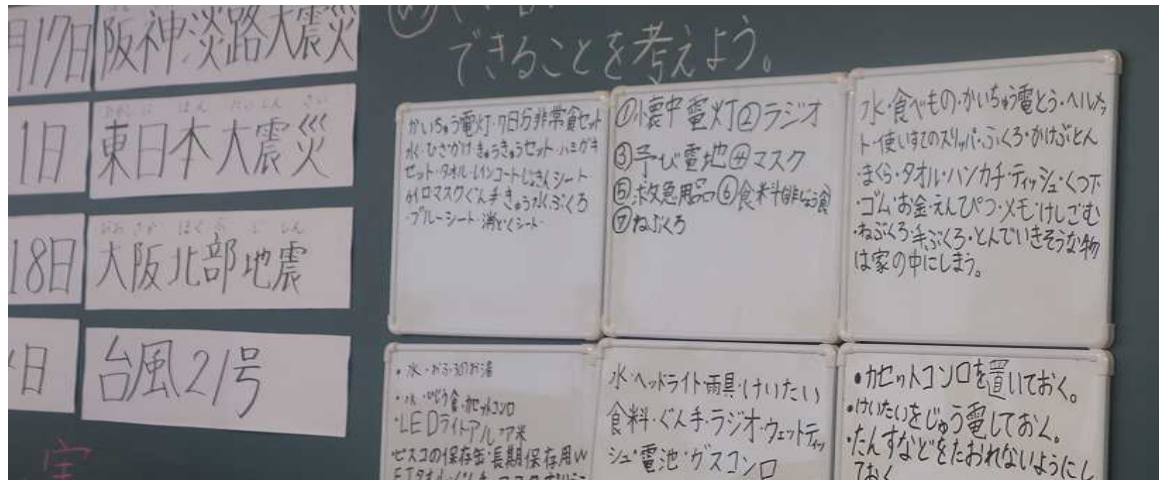 月17日
阪神淡路大震災
1日
ひがしに ほん だいしん さい
東日本大震災
18日
おおさか ほく ぶ じ しん
大阪北部地震
日
台風21号
できることを考えよう。
かいちゅう電灯・7日分非常食セット
水・ひざかけ・きゅうきゅうセット・ハミガキ
セット・タオル・レインコート・じょきんシート
カイロマスクぐん手きゅう水ぶくろ
・ブルーシート・消どくシート
①懐中電灯②ラジオ
③予び電地④マスク
⑤救急用品⑥食料非じょう食
⑦ねぶくろ
水・食べもの・かいちゅう電とう・ヘルメッ
ト・使いすてのスリッパ・ふくろ・かけぶとん
・まくら・タオル・ハンカチ・ティッシュ・くつ下
・ゴム・お金・えんぴつ・メモ・けしごむ
・ねぶくろ・手ぶくろ・とんでいきそうな物
は家の中にしまう。
・水・おふろのお湯
・水・ひじょう食・カセットコンロ
・LEDライト・アルファ米
ビスコの保存缶・長期保存用W
水・ヘッドライト・雨具・けいたい
食料・ぐん手・ラジオ・ウェットティッ
シュ・電池・ガスコンロ
・カセットコンロを置いておく。
・けいたいをじゅう電しておく。
・たんすなどをたおれないようにし
ておく